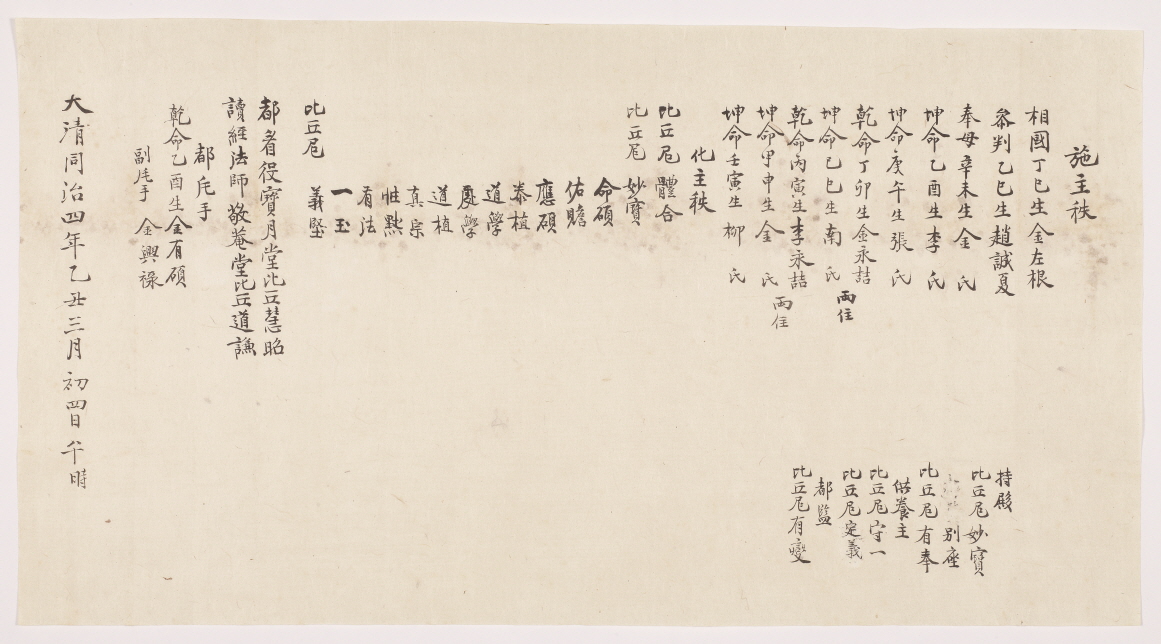 施主秩
相國丁巳生金左根
叅判乙巳生趙誠夏
奉母辛未生金 氏
坤命乙酉生李 氏
坤命庚午生張 氏
乾命丁卯生金永喆
坤命乙巳生南 氏 兩位
乾命丙寅生李永喆
坤命甲申生金 氏 兩位
坤命壬寅生柳 氏
化主秩
比丘尼 體合
比丘尼 妙寶
命碩
佑贍
應碩
泰植
道學
慶學
道植
真宗
性點
有法
一玉
比丘尼 義堅
都看役寶月堂比丘慧昭
讀經法師敬菴堂比丘道謙
都片手
乾命乙酉生金有碩
副片手 金興祿
大清同治四年乙丑三月初四日午時
持殿
比丘尼妙寶
別座
比丘尼有奉
供養主
比丘尼守一
比丘尼定義
都監
比丘尼有變